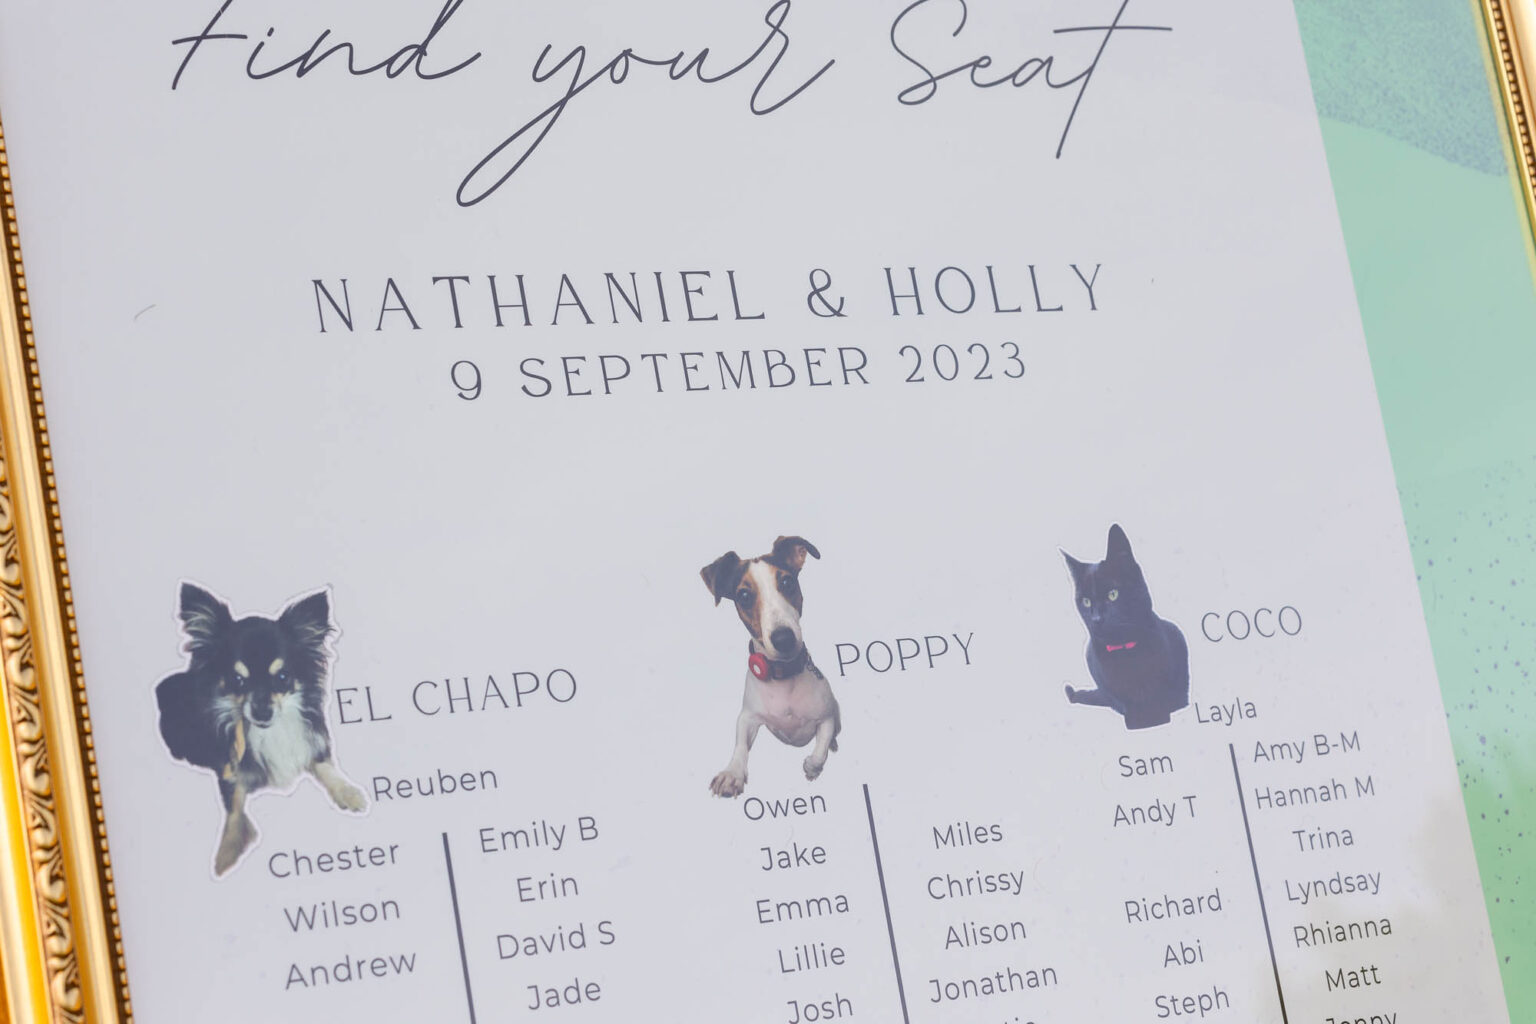 Find your Seat
NATHANIEL & HOLLY
9 SEPTEMBER 2023
EL CHAPO
Reuben
Chester
Wilson
Andrew
Emily B
Erin
David S
Jade
POPPY
Owen
Jake
Emma
Lillie
Josh
Miles
Chrissy
Alison
Jonathan
COCO
Layla
Sam
Andy T
Richard
Abi
Steph
Amy B-M
Hannah M
Trina
Lyndsay
Rhianna
Matt
Jenny